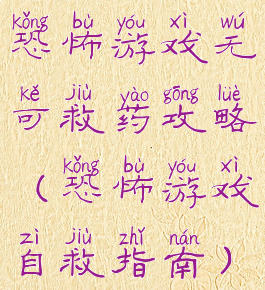 kǒng bù yóu xì wú
恐怖游戏无
kě jiù yào gōng lüè
可救药攻略
kǒng bù yóu xì
（恐怖游戏
zì jiù zhǐ nán
自救指南）